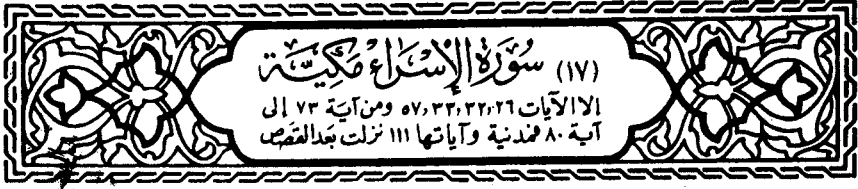 (١٧) سُورَةُ الإِسْرَاءِ مَكِّيَّة
إلا الآيات ٢٦، ٣٢، ٣٣، ٥٧ ومن آية ٧٣ إلى
آية ٨٠ فمدنية وآياتها ١١١ نزلت بعد القصص